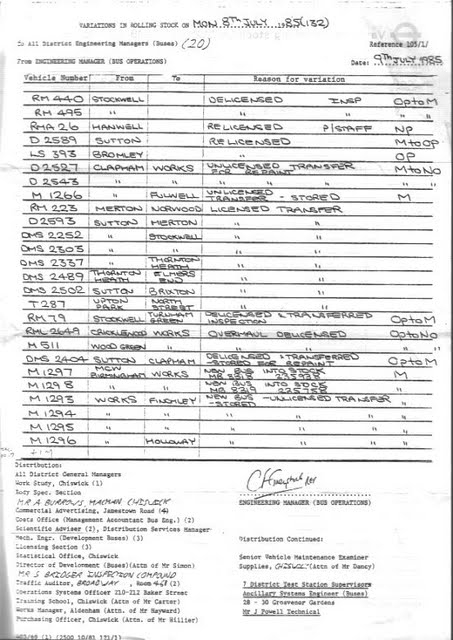 VARIATIONS IN ROLLING STOCK on MON 8TH JULY 1985 (132)
To All District Engineering Managers (Buses) (20)
Reference 105/1/
From ENGINEERING MANAGER (BUS OPERATIONS)
Date: 9TH JULY 1985
Vehicle Number From To Reason for variation
RM 440 STOCKWELL DELICENSED INSP Op to M
RM 495 " " "
RMA 26 HANWELL RELICENSED P/STAFF NP
D 2589 SUTTON RELICENSED M to OP
LS 393 BROMLEY " OP
D 2527 CLAPHAM WORKS UNLICENSED TRANSFER FOR REPAINT M to No
D 2543 " " " " "
M 1266 FULWELL UNLICENSED TRANSFER - STORED M
RM 223 MERTON NORWOOD LICENSED TRANSFER
D 2593 SUTTON MERTON " "
DMS 2252 " STOCKWELL " "
DMS 2303 " " " "
DMS 2337 " THORNTON HEATH " "
DMS 2489 THORNTON HEATH ELMERS END " "
DMS 2502 SUTTON BRIXTON " "
T 287 UPTON PARK NORTH STREET " "
RM 79 STOCKWELL TURNHAM GREEN DELICENSED & TRANSFERRED INSPECTION Op to M
RML 2649 CRICKLEWOOD WORKS OVERHAUL DELICENSED Op to No
M 511 WOOD GREEN " " " "
DMS 2404 SUTTON CLAPHAM DELICENSED & TRANSFERRED - STORED FOR REPAINT Op to M
M 1297 MCW BIRMINGHAM WORKS NEW BUS INTO STOCK M
M 1298 " " NEW BUS INTO STOCK "
M 1293 WORKS FINCHLEY NEW BUS - UNLICENSED TRANSFER - STORED "
M 1294 " " " " " "
M 1295 " " " " " "
M 1296 " HOLLOWAY " " " "
Distribution:
All District General Managers
Work Study, Chiswick (1)
Body Spec. Section
MR A BURROWS, CHISWICK
Commercial Advertising, Jamestown Road (4)
Costs Office (Management Accountant Bus Eng.) (2)
Scientific Adviser (2), Distribution Services Manager
Mech. Engr. (Development Buses) (3)
Licensing Section (3)
Statistical Office, Chiswick
Director of Development (Buses)(Attn of Mr Simon)
MR S BRIDGER INSPECTION COMPOUND
Traffic Auditor, BROADWAY, Room
Operations Systems Officer 210-212 Baker Street
Training School, Chiswick (Attn of Mr Carter)
Works Manager, Aldenham (Attn. of Mr Hayward)
Purchasing Officer, Chiswick (Attn of Mr Hillier)
ENGINEERING MANAGER (BUS OPERATIONS)
Distribution Continued:
Senior Vehicle Maintenance Examiner
Supplies, CHISWICK (Attn of Mr Dancy)
7 District Test Station Supervisors
Ancillary Systems Engineer (Buses)
28 - 30 Grosvenor Gardens
Mr J Powell Technical